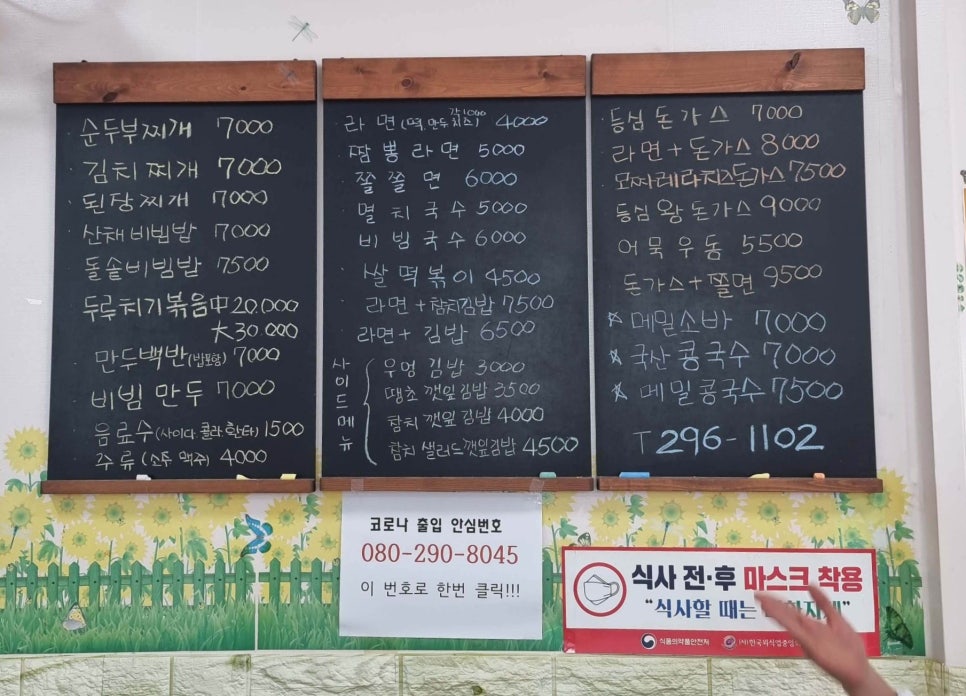 순두부찌개 7000
김치찌개 7000
된장찌개 7000
산채비빔밥 7000
돌솥비빔밥 7500
두루치기볶음中 20.000
大 30 000
만두백반(밥포함) 7000
비빔만두 7000
음료수(사이다. 콜라. 환타) 1500
주류(소주 맥주) 4000
각1000
라면(떡.만두치즈) 4000
짬뽕라면 5000
쫄쫄면 6000
멸치국수 5000
비빔국수 6000
쌀떡볶이 4500
라면+참치김밥 7500
라면+김밥 6500
사이드메뉴
우엉김밥 3000
땡초깻잎김밥 3500
참치깻잎김밥 4000
참치샐러드깻잎김밥 4500
등심돈가스 7000
라면+돈가스 8000
모짜레라치즈돈가스 7500
등심왕돈가스 9000
어묵우동 5500
돈가스+쫄면 9500
☆메밀소바 7000
☆국산콩국수 7000
☆메밀콩국수 7500
T 296-1102
코로나 출입 안심번호
080-290-8045
이 번호로 한번 클릭!!!
식사 전·후 마스크 착용
“식사할 때는
식품의약품안전처